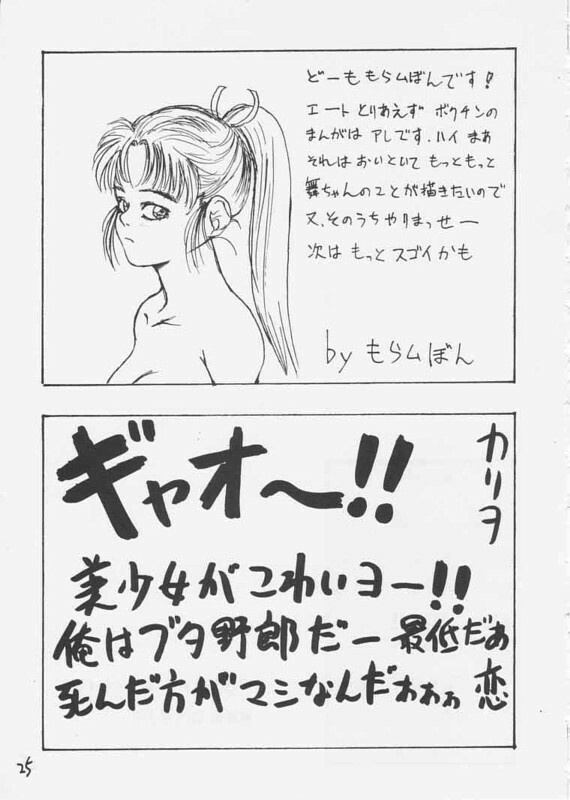 どーも もらムぼんです!
エート とりあえず ボクチンの
まんがは アレです. ハイ まぁ
それは おいといて もっともっと
舞ちゃんのことが描きたいので
又、そのうちやりまっせー
次は もっと スゴイかも
by もらムぼん
カリヲ
ギャオ〜!!
美少女がこわいヨー!!
俺はブタ野郎だー 最低だぁ
死んだ方がマシなんだゎぁぁ 恋
25